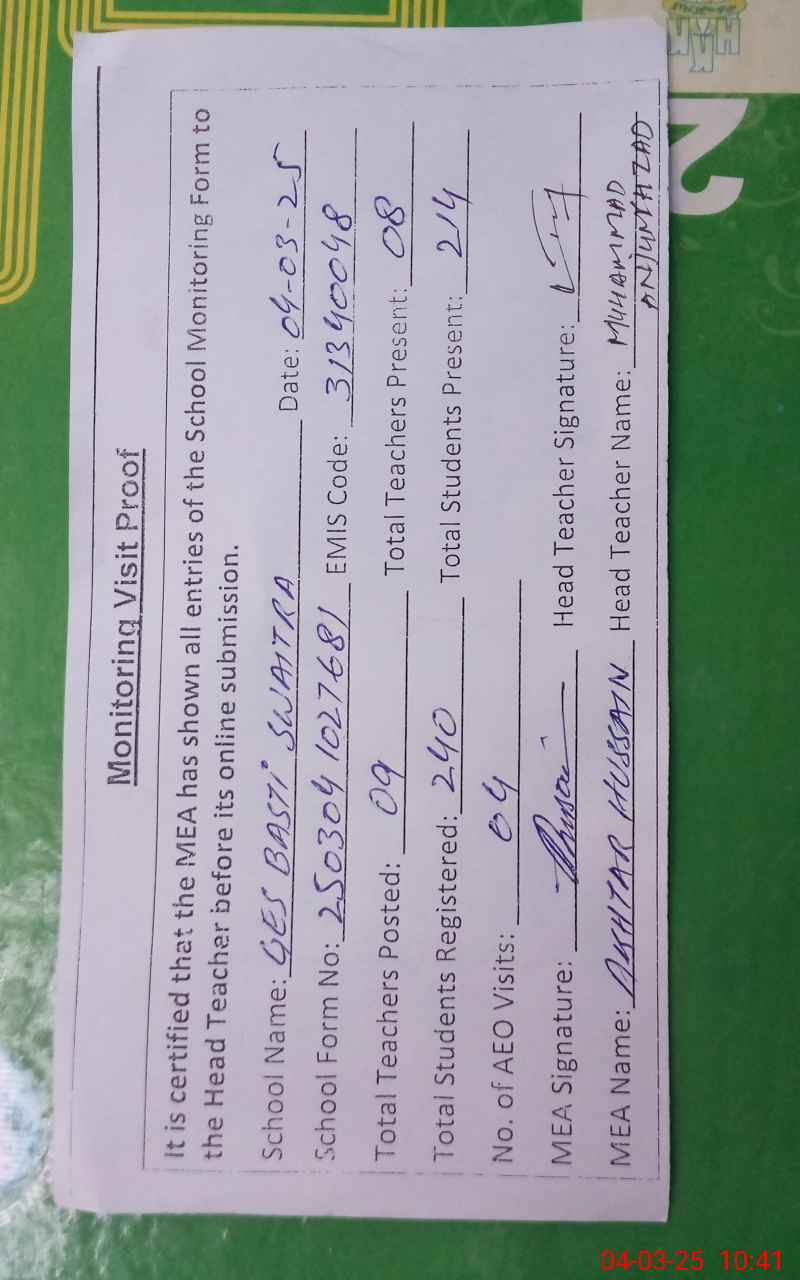 Monitoring Visit Proof
It is certified that the MEA has shown all entries of the School Monitoring Form to
the Head Teacher before its online submission.
School Name: GES BASTI SWAITRA Date: 04-03-25
School Form No: 2503041027681 EMIS Code: 31340048
Total Teachers Posted: 09 Total Teachers Present: 08
Total Students Registered: 240 Total Students Present: 214
No. of AEO Visits: 04
MEA Signature: Head Teacher Signature:
MEA Name: AKHTAR HUSSAIN Head Teacher Name: MUHAMMAD
ANJUM
2
04-03-25 10:41